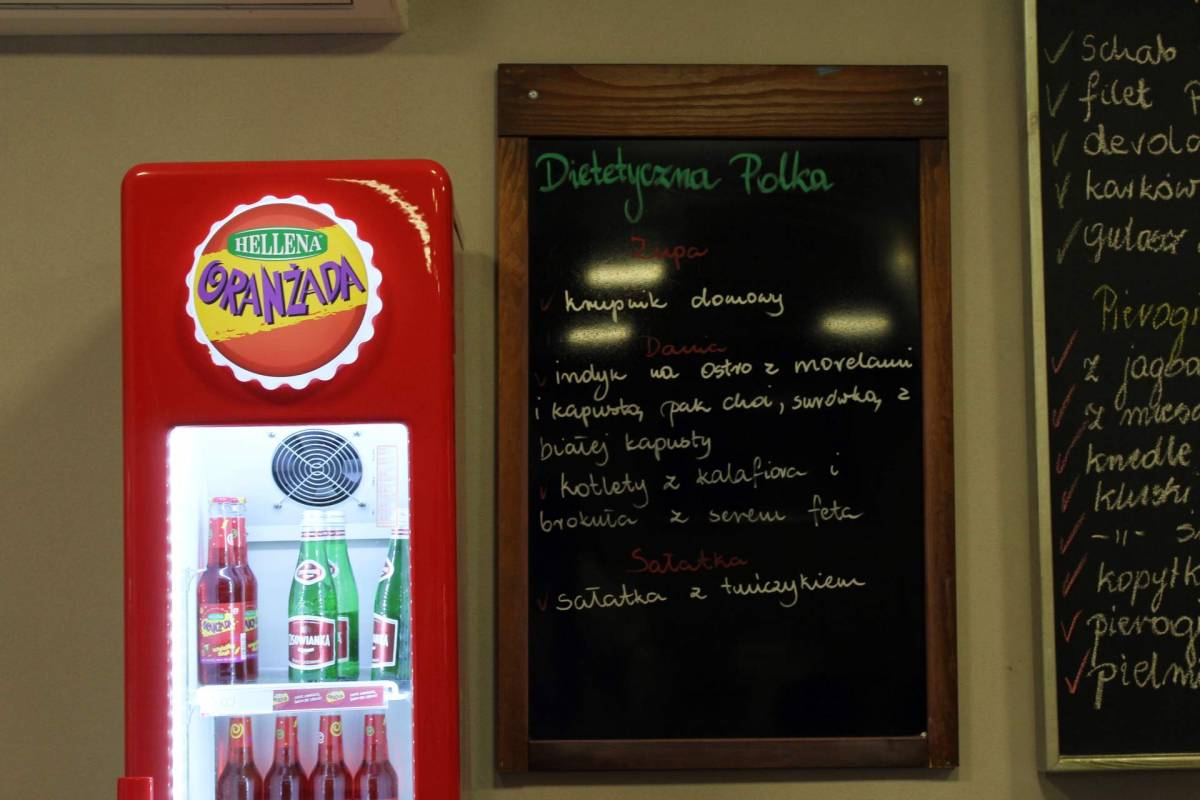 HELLENA
ORANŻADA
HELLENA
ORANŻADA
Dietetyczna Polka
Zupa
krupnik domowy
Dania
indyk na ostro z morelami
i kapustą, pak choi, surówką z
białej kapusty
kotlety z kalafiora i
brokuła z serem feta
Sałatka
sałatka z tuńczykiem
schab
filet
devola
karków
gulasz
Pierogi
z jagoda
z mięse
knedle
kluski
-11-
kopytk
pierogi
pielm